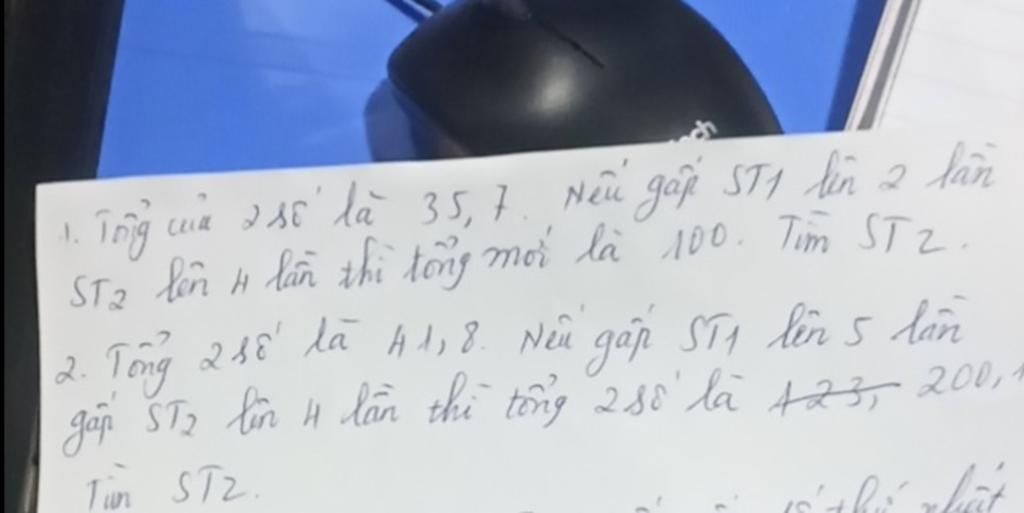 ch
1. Tổng của 2 số là 35,7. Nếu gấp ST1 lên 2 lần
ST2 lên 4 lần thì tổng mới là 100. Tìm ST2.
2. Tổng 2 số là 41,8. Nếu gấp ST1 lên 5 lần
gấp ST2 lên 4 lần thì tổng 2 số là 123, 200,
Tìm ST2.
số thứ nhất